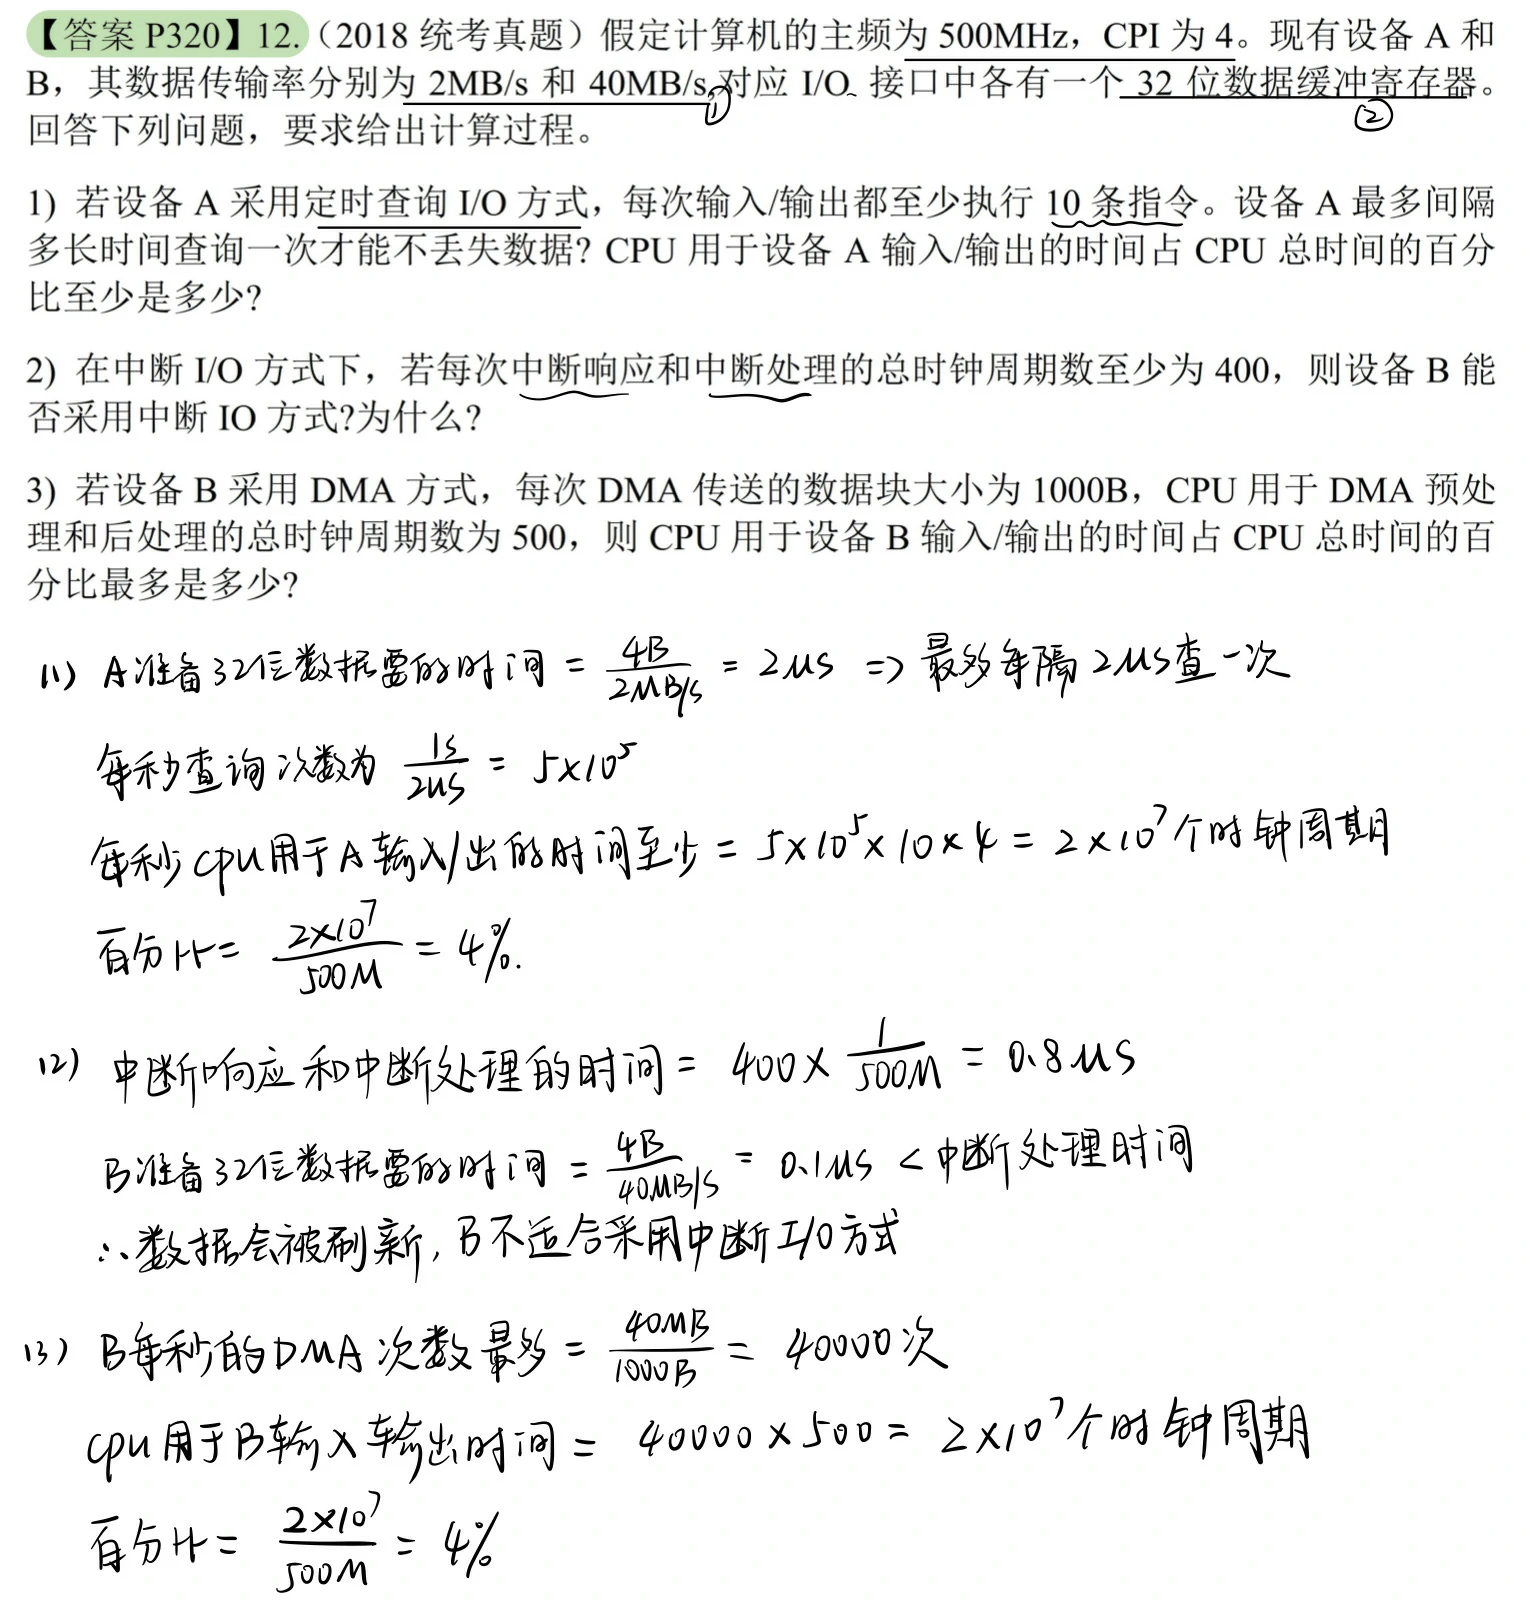 【答案 P320】12.（2018 统考真题）假定计算机的主频为 500MHz，CPI 为 4。现有设备 A 和
B，其数据传输率分别为 2MB/s 和 40MB/s,对应 I/O 接口中各有一个 32 位数据缓冲寄存器。
① ②
回答下列问题，要求给出计算过程。
1) 若设备 A 采用定时查询 I/O 方式，每次输入/输出都至少执行 10 条指令。设备 A 最多间隔
多长时间查询一次才能不丢失数据? CPU 用于设备 A 输入/输出的时间占 CPU 总时间的百分
比至少是多少?
2) 在中断 I/O 方式下，若每次中断响应和中断处理的总时钟周期数至少为 400，则设备 B 能
否采用中断 IO 方式?为什么?
3) 若设备 B 采用 DMA 方式，每次 DMA 传送的数据块大小为 1000B，CPU 用于 DMA 预处
理和后处理的总时钟周期数为 500，则 CPU 用于设备 B 输入/输出的时间占 CPU 总时间的百
分比最多是多少?
(1) A准备32位数据需的时间 = 4B/2MB/s = 2us => 最多每隔2us查一次
每秒查询次数为 1s/2us = 5×10^5
每秒cpu用于A输入/出的时间至少 = 5×10^5×10×4 = 2×10^7个时钟周期
百分比 = 2×10^7/500M = 4%.
(2) 中断响应和中断处理的时间 = 400× 1/500M = 0.8us
B准备32位数据需的时间 = 4B/40MB/s = 0.1us < 中断处理时间
∴数据会被刷新, B不适合采用中断I/O方式
(3) B每秒的DMA次数最多 = 40MB/1000B = 40000次
cpu用于B输入输出时间 = 40000×500 = 2×10^7个时钟周期
百分比 = 2×10^7/500M = 4%